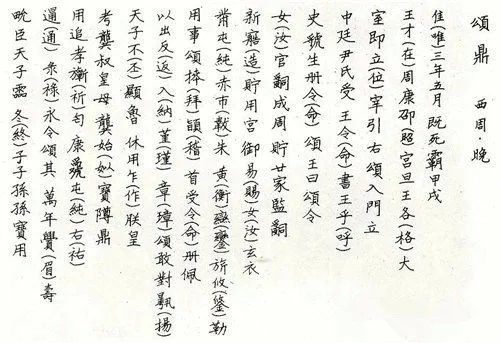 頌鼎 西周·晚
隹(唯)三年五月既死霸甲戌
王才(在)周康邵(照)宮旦王各(格)大
室即立(位)宰引右頌入門立
中廷尹氏受王令(命)書王乎(呼)
史虢生册令(命)頌王曰頌令
女(汝)官嗣成周貯廿家監嗣
新寤(造)貯用宮御易(賜)女(汝)玄衣
黹屯(純)赤巿(韍)朱黃衡䜌(鑾)旂攸(鋚)勒
用事頌捧(拜)䭫(稽)首受令(命)册佩
以出反(返)入(納)堇(瑾)章(璋)頌敢對(揚)
天子不(丕)顯魯休用乍(作)朕皇
考龔叔皇母龔始(姒)寶隣鼎
用追孝(祈)匄康屯(純)右(祐)
通彔(祿)永令頌其萬年釁(眉)壽
畯臣天子霝冬(終)子子孫孫寶用